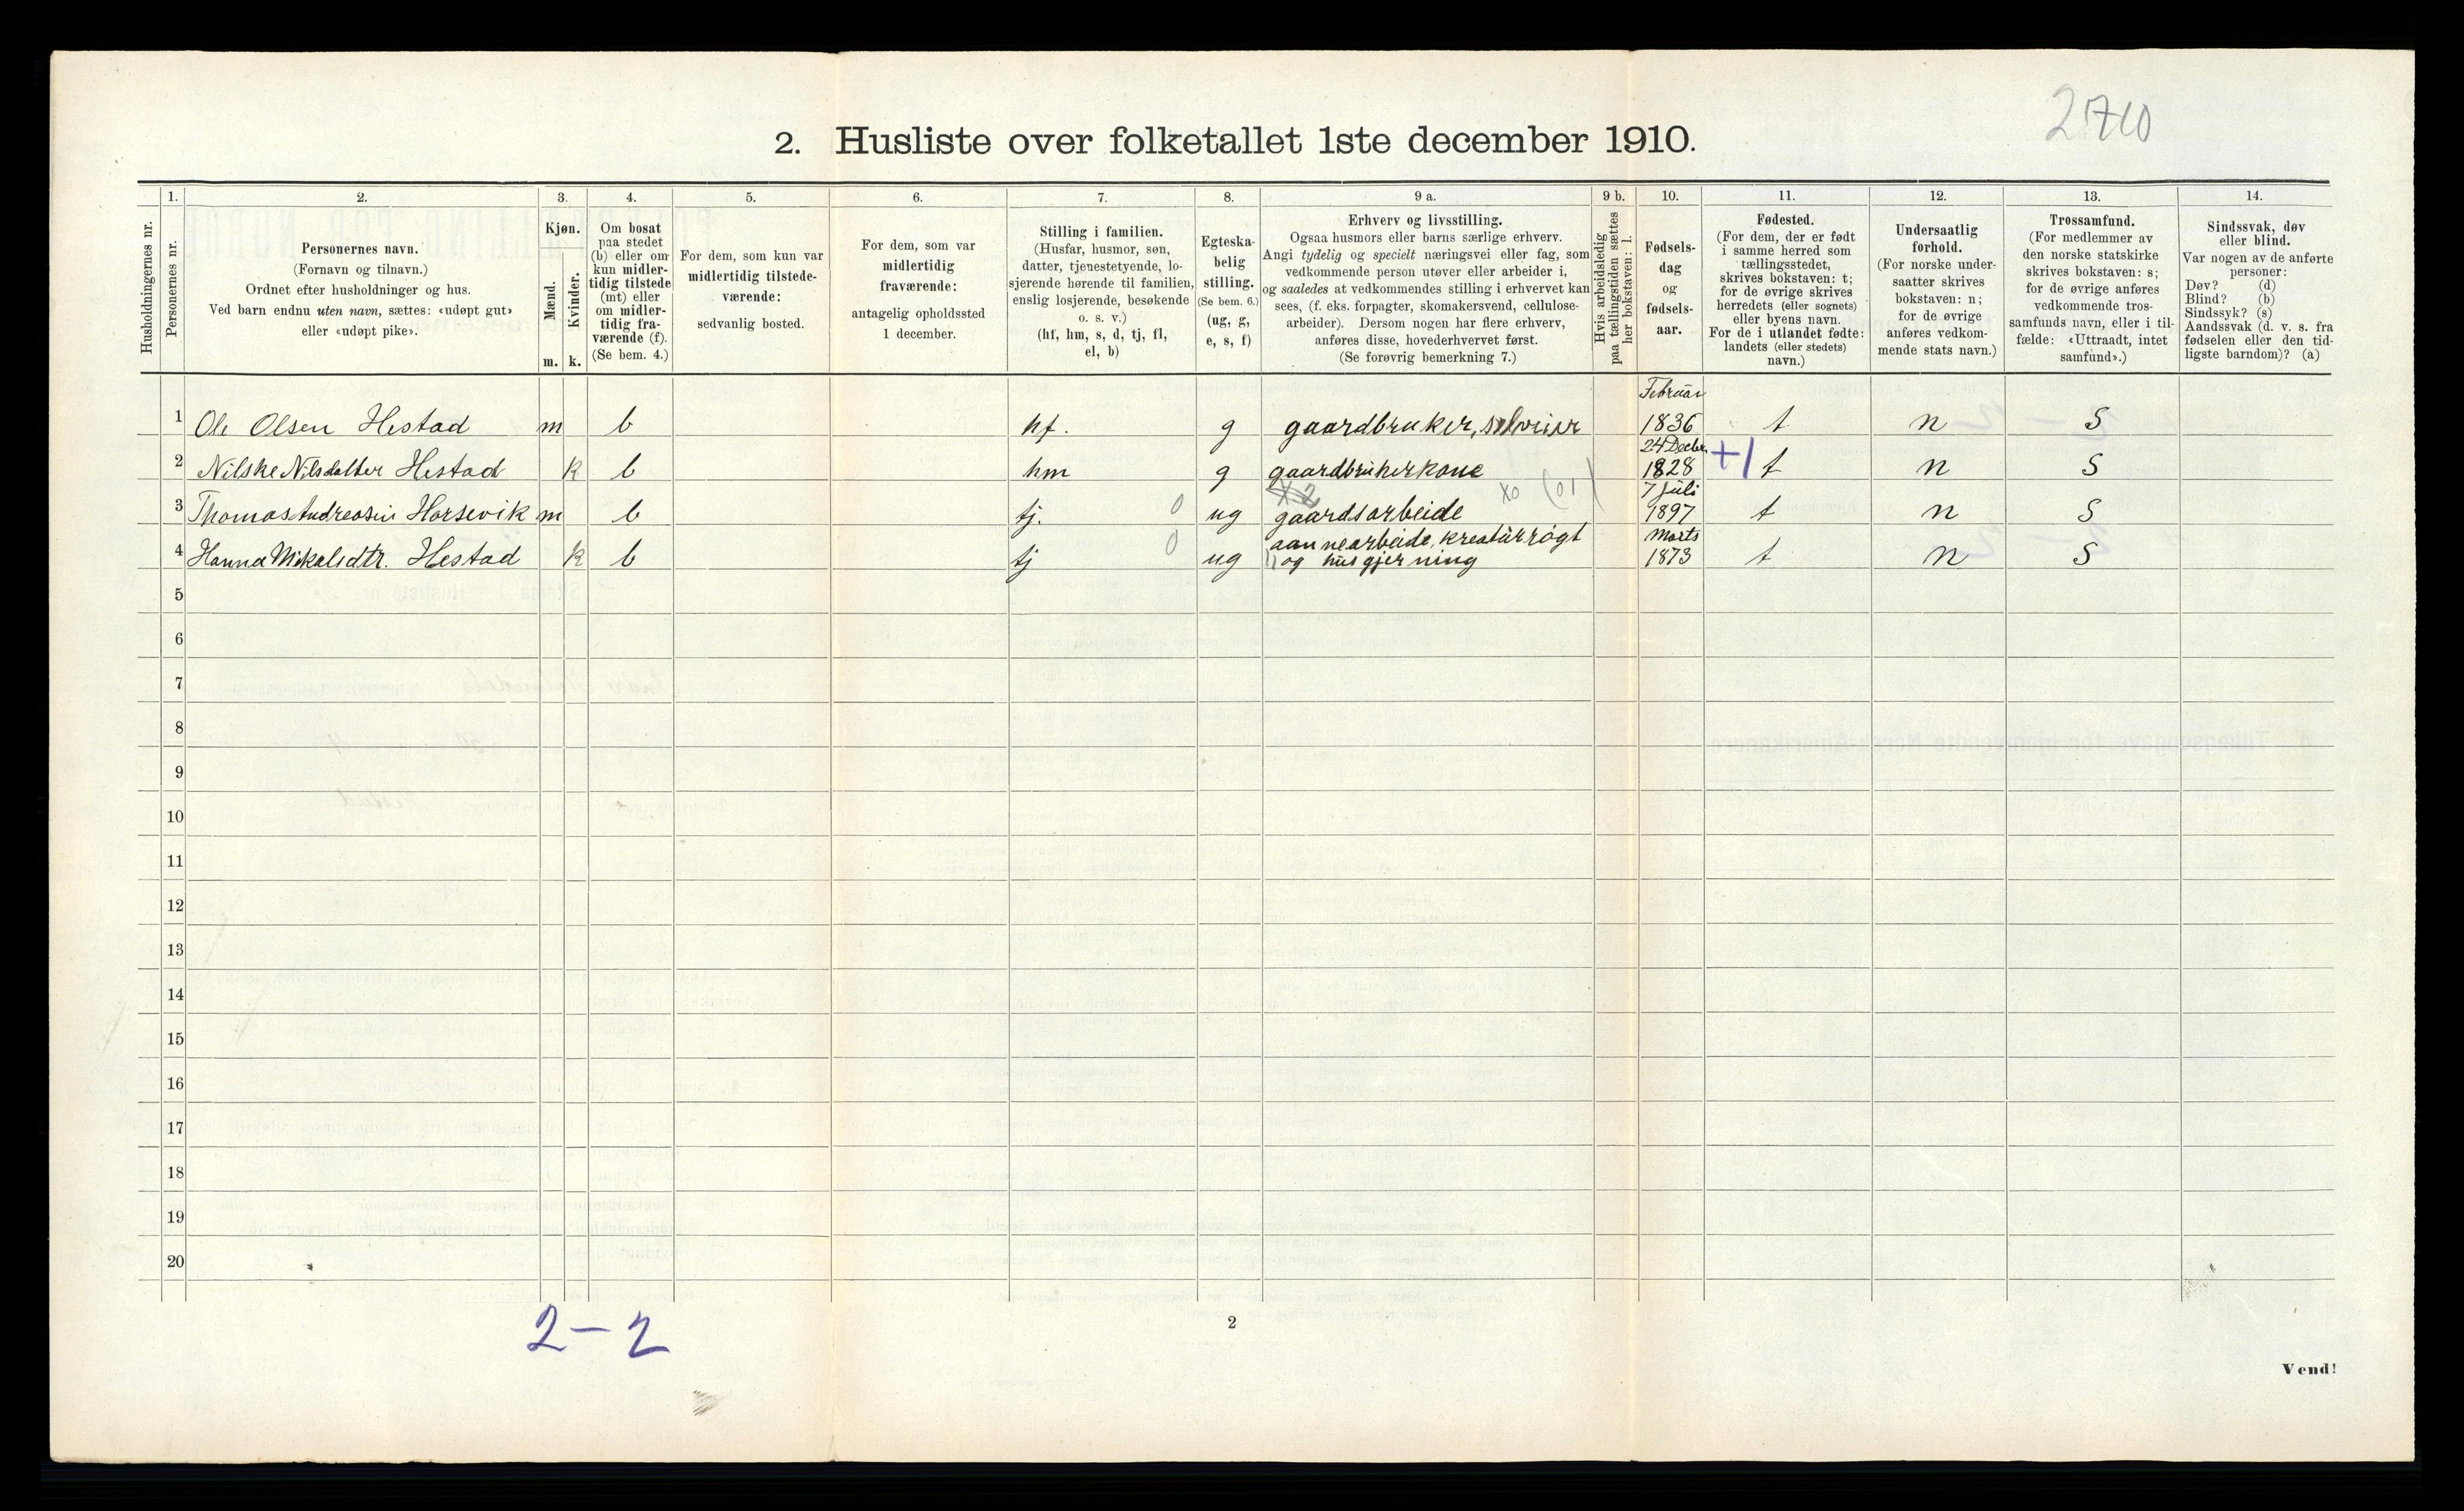 2710
2. Husliste over folketallet 1ste december 1910.
Husholdningernes nr.
1.
Personernes nr.
2.
Personernes navn.
(Fornavn og tilnavn.)
Ordnet efter husholdninger og hus.
Ved barn endnu uten navn, sættes: «udøpt gut»
eller «udøpt pike».
3.
Kjøn.
Mænd.
Kvinder.
m. k.
4.
Om bosat
paa stedet
(b) eller om
kun midler-
tidig tilstede
(mt) eller
om midler-
tidig fra-
værende (f).
(Se bem. 4.)
5.
For dem, som kun var
midlertidig tilstede-
værende:
sedvanlig bosted.
6.
For dem, som var
midlertidig
fraværende:
antagelig opholdssted
1 december.
7.
Stilling i familien.
(Husfar, husmor, søn,
datter, tjenestetyende, lo-
sjerende hørende til familien,
enslig losjerende, besøkende
o. s. v.)
(hf, hm, s, d, tj, fl,
el, b)
8.
Egteska-
belig
stilling.
(Se bem. 6.)
(ug, g,
e, s, f)
9 a.
Erhverv og livsstilling.
Ogsaa husmors eller barns særlige erhverv.
Angi tydelig og specielt næringsvei eller fag, som
vedkommende person utøver eller arbeider i,
og saaledes at vedkommendes stilling i erhvervet kan
sees, (f. eks. forpagter, skomakersvend, cellulose-
arbeider). Dersom nogen har flere erhverv,
anføres disse, hovederhvervet først.
(Se forøvrig bemerkning 7.)
9 b.
Hvis arbeidsledig
paa tællingstiden sættes
her bokstaven: l.
10.
Fødsels-
dag
og
fødsels-
aar.
11.
Fødested.
(For dem, der er født
i samme herred som
tællingsstedet,
skrives bokstaven: t;
for de øvrige skrives
herredets (eller sognets)
eller byens navn.
For de i utlandet fødte:
landets (eller stedets)
navn.)
12.
Undersaatlig
forhold.
(For norske under-
saatter skrives
bokstaven: n;
for de øvrige
anføres vedkom-
mende stats navn.)
13.
Trossamfund.
(For medlemmer av
den norske statskirke
skrives bokstaven: s;
for de øvrige anføres
vedkommende tros-
samfunds navn, eller i til-
fælde: «Uttraadt, intet
samfund».)
14.
Sindssvak, døv
eller blind.
Var nogen av de anførte
personer:
Døv? (d)
Blind? (b)
Sindssyk? (s)
Aandssvak (d. v. s. fra
fødselen eller den tid-
ligste barndom)? (a)
Februar
1 Ole Olsen Hestad m b hf. g gaardbruker, selveier 1836 t n S
24 Decbr.
2 Nilske Nilsdatter Hestad k b hm g gaardbrukerkone 1828 +1 t n S
X2 X0 (01) 7 juli
3 Thomas Andreasen Horsevik m b tj. 0 ug gaardsarbeide 1897 t n S
aannearbeide, kreaturrøgt Marts
4 Hanna Mikalsdtr. Hestad k b tj 0 ug og husgjerning 1873 t n S
5
6
7
8
9
10
11
12
13
14
15
16
17
18
19
20
2-2
2
Vend!